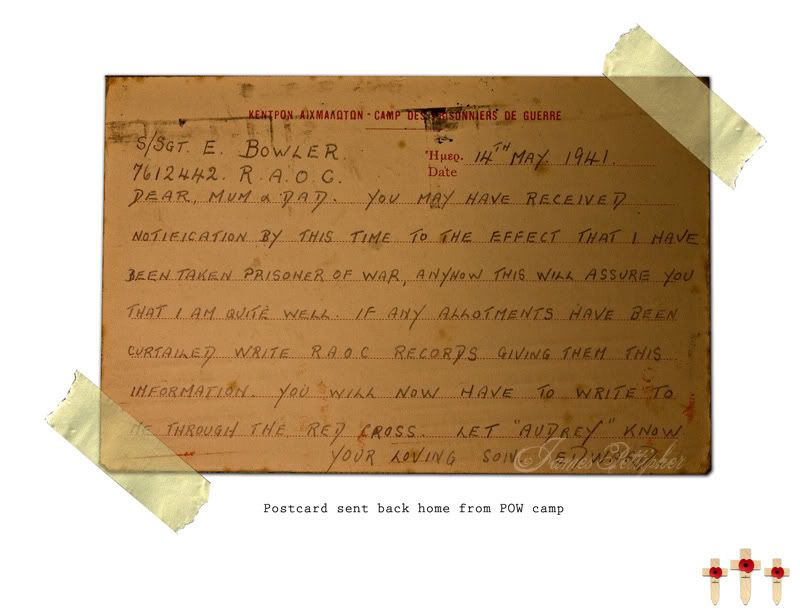 ΚΕΝΤΡΟΝ ΑΙΧΜΑΛΩΤΩΝ - CAMP DES PRISONNIERS DE GUERRE
S/SGT. E. BOWLER.
Ἡμερ. 14TH MAY. 1941.
7612442. R.A.O.C.
Date
DEAR, MUM & DAD. YOU MAY HAVE RECEIVED
NOTIFICATION BY THIS TIME TO THE EFFECT THAT I HAVE
BEEN TAKEN PRISONER OF WAR, ANYHOW THIS WILL ASSURE YOU
THAT I AM QUITE WELL. IF ANY ALLOTMENTS HAVE BEEN
CURTAILED WRITE R A O C RECORDS GIVING THEM THIS
INFORMATION. YOU WILL NOW HAVE TO WRITE TO
ME THROUGH THE RED CROSS. LET "AUDREY" KNOW
YOUR LOVING SON, EDWARD
Postcard sent back home from POW camp